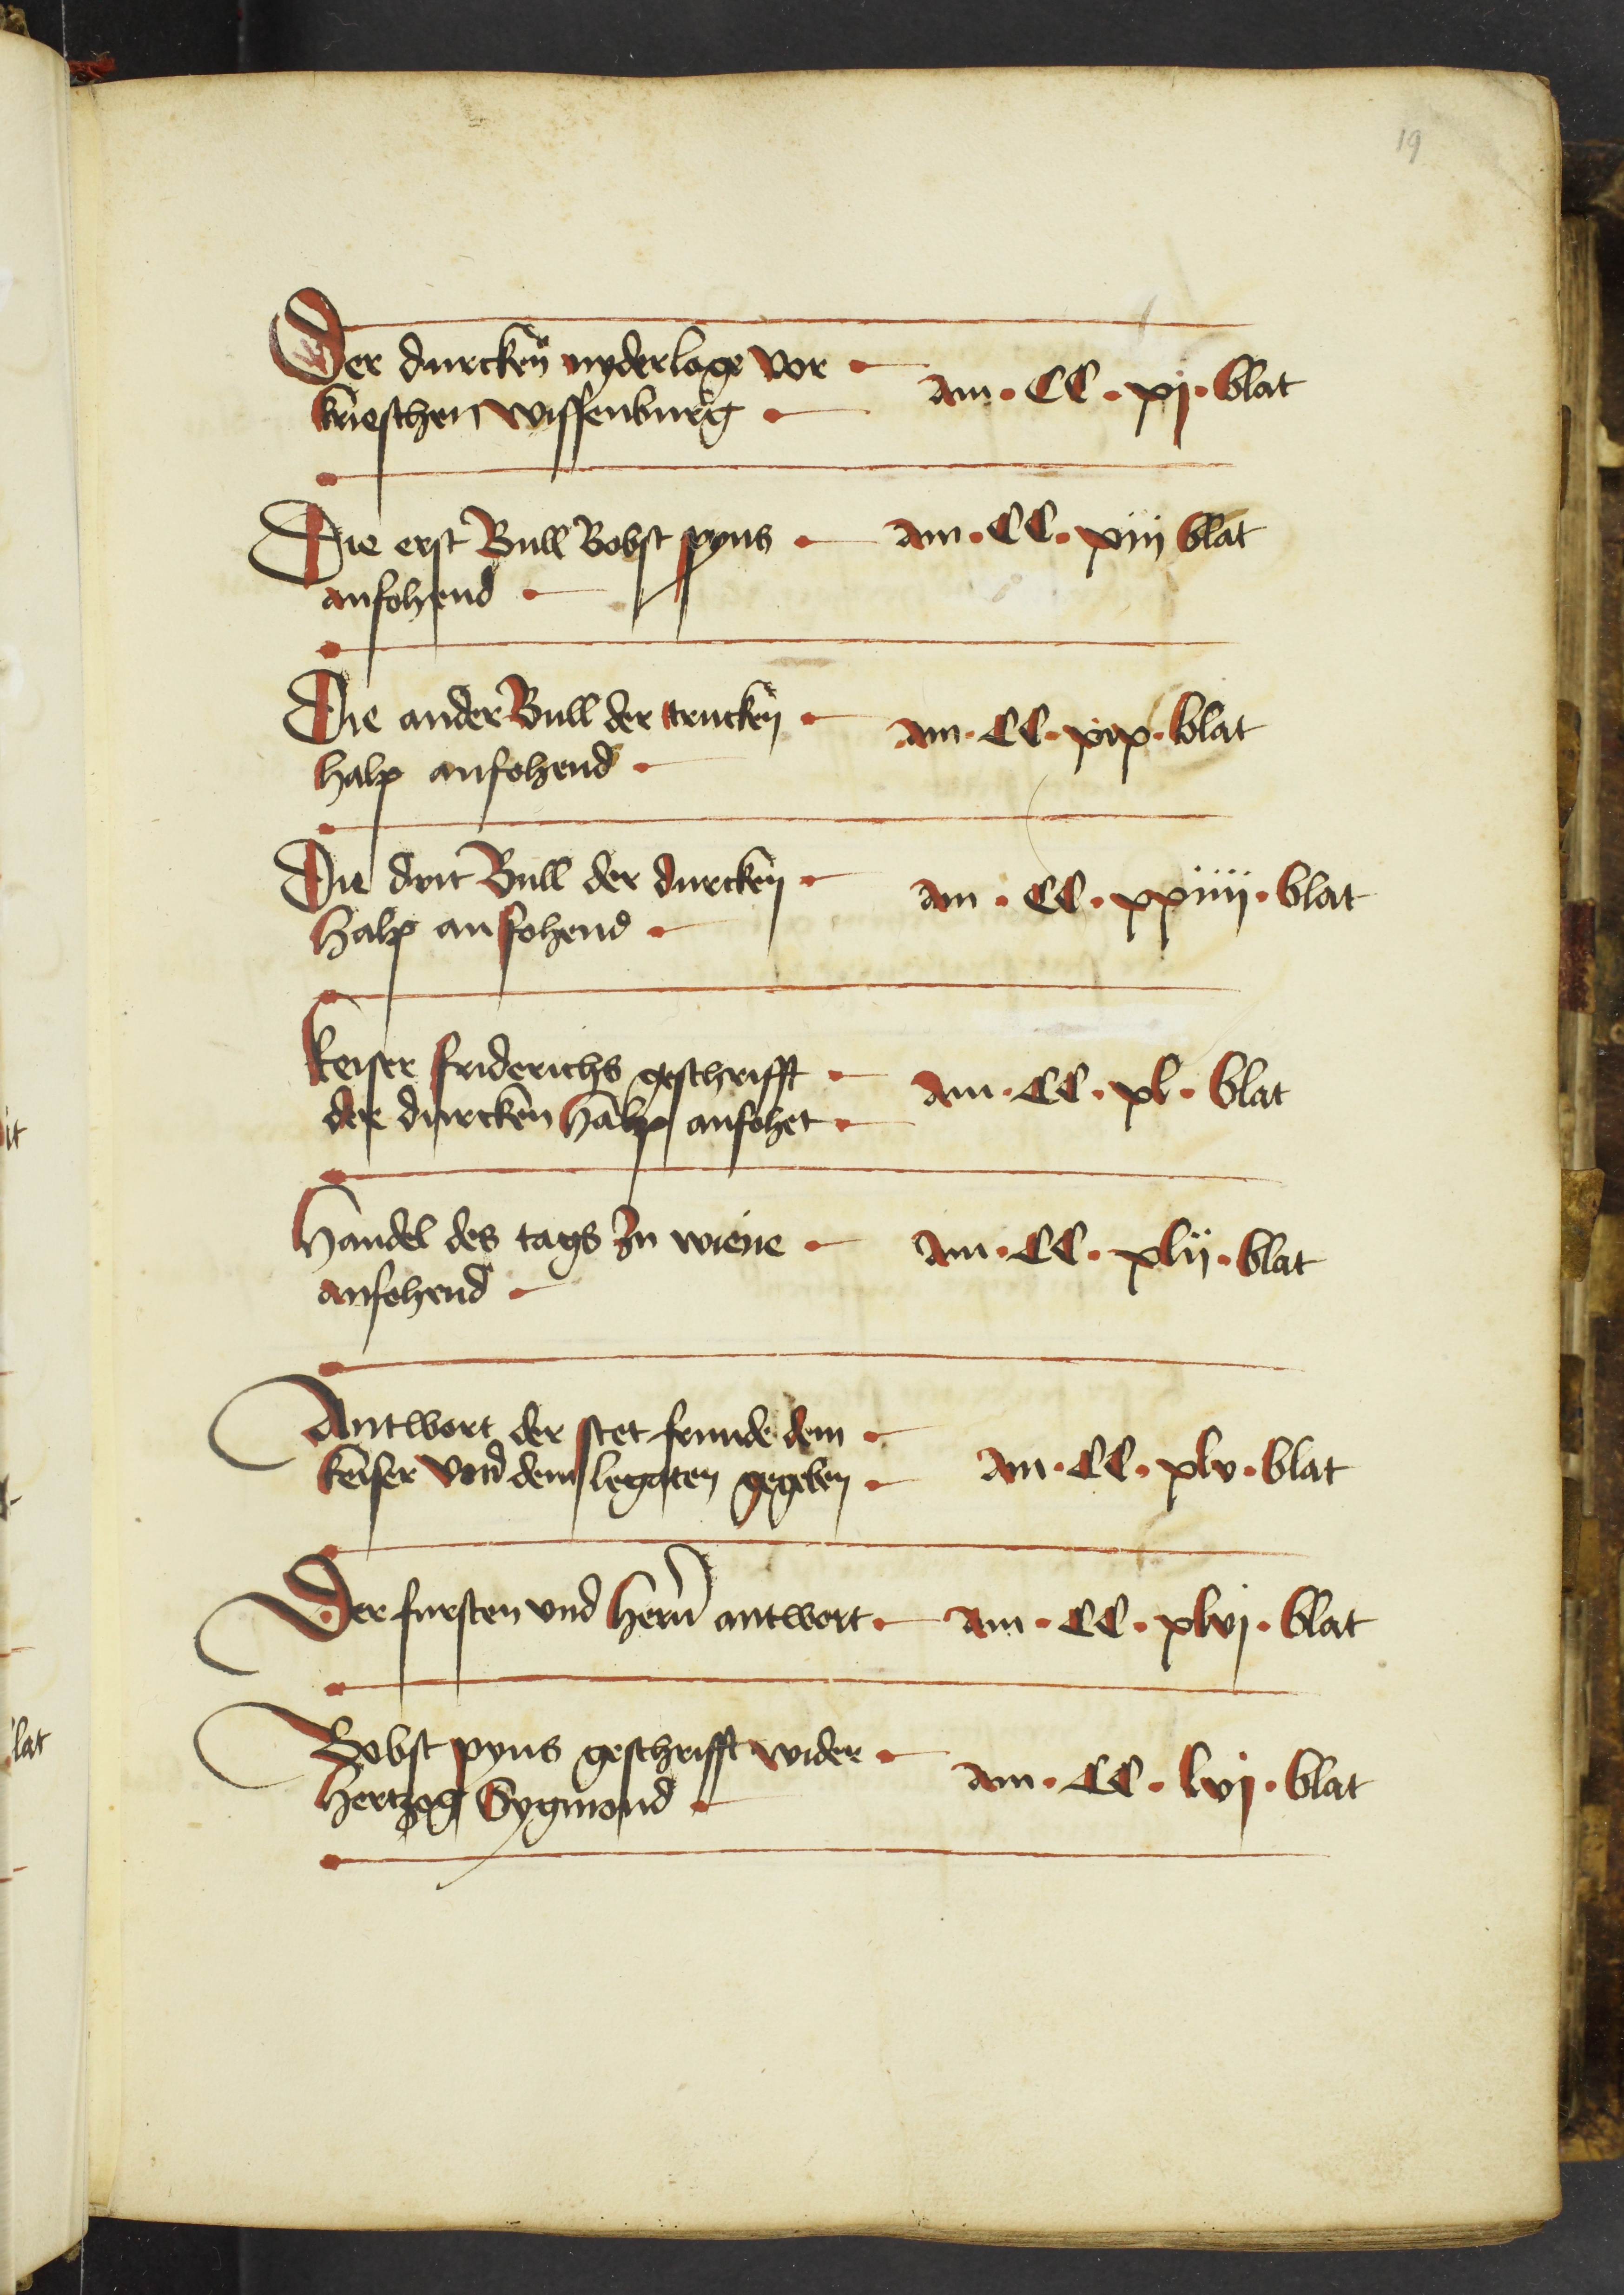 19
Der durcken nyderlage vor
krieschen wissenburg
am · CC · xj · blat
Die erst Bull Bobst pyus
anfohend
am · CC · xiij blat
Die ander Bull der trucken
halp anfohend
am · CC · xix · blat
Die drit Bull der durcken
halp anfohend
am · CC · xxiiij · blat
keiser friderichs geschrifft
der durcken halp anfohet
am · CC · xl · blat
Handel des tags zu wiene
anfohend
am · CC · xlij · blat
Antwort der stet frunde dem
keiser vnd dem legaten gegeben
am · CC · xlv · blat
Der fursten vnd hern antwort
am · CC · xlvj · blat
Bobst pyus geschrifft wider
hertzog Sygmond
am · CC · lvj · blat